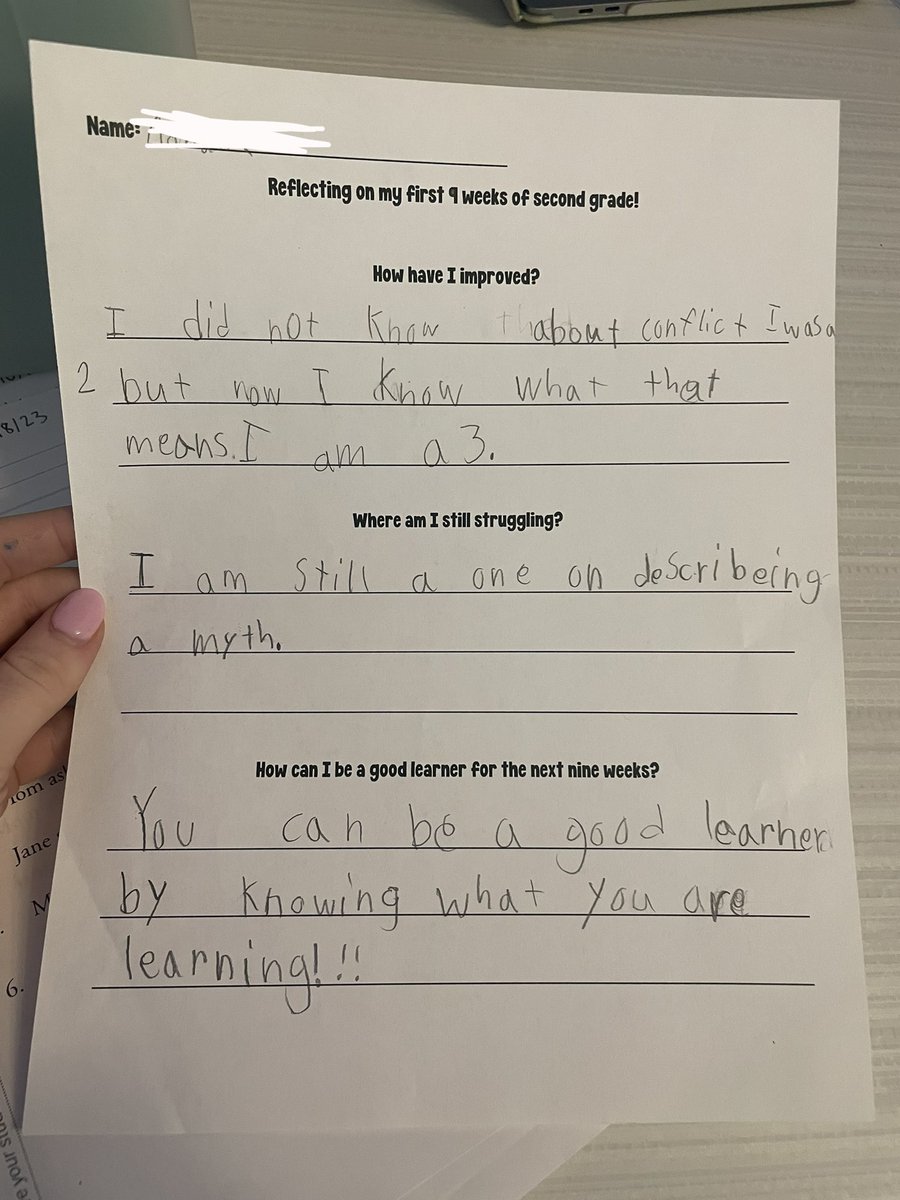 Name:
Reflecting on my first 9 weeks of second grade!
How have I improved?
I did not know about conflict I was a
2 but now I know what that
means. I am a 3.
Where am I still struggling?
I am still a one on describeing
a myth.
How can I be a good learner for the next nine weeks?
You can be a good learner
by knowing what you are
learning!!!
8/23
Jane
M
6.